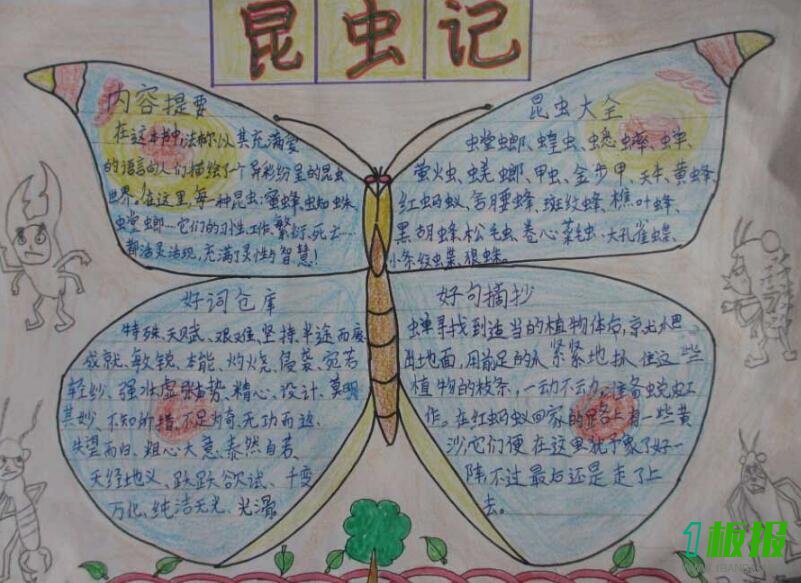 昆虫记
内容提要
在这本书中法布尔以其充满爱
的语言向人们描绘了个异彩纷呈的昆虫
世界。在这里,每一种昆虫:蜜蜂、蜘蛛、
螳螂…它们的习性工作、繁衍、死亡…
都活灵活现,充满了灵性与智慧!
昆虫大全
螳螂、蝗虫、蟋蟀、蝉、
萤火虫、蜣螂、甲虫、金步甲、天牛、黄蜂、
红蚂蚁、条蜂、斑纹蜂、樵叶蜂、
黑胡蜂、松毛虫、卷心菜毛虫、大孔雀蝶、
小条纹蝶、狼蛛。
好词仓库
特殊、天赋、艰难、坚持、半途而废
成就、敏锐、本能、灼烧、侵袭、宛若
轻纱、强壮、虚张声势、精心、设计、莫明
其妙、不知所措、不足为奇、无功而返、
失望而归、粗心大意、泰然自若、
天经地义、跃跃欲试、千变
万化、纯洁无光、光滑
好句摘抄
蝉寻找到适当的植物体后,就爬
出地面,用前足的爪紧紧地抓住这些
植物的枝条,一动不动,准备蜕皮工
作。在红蚂蚁回家的路上有一些黄
沙,它们便在这里犹豫了好一
阵,不过最后还是走了上
去。
1板报
WWW.1BANBAO.COM